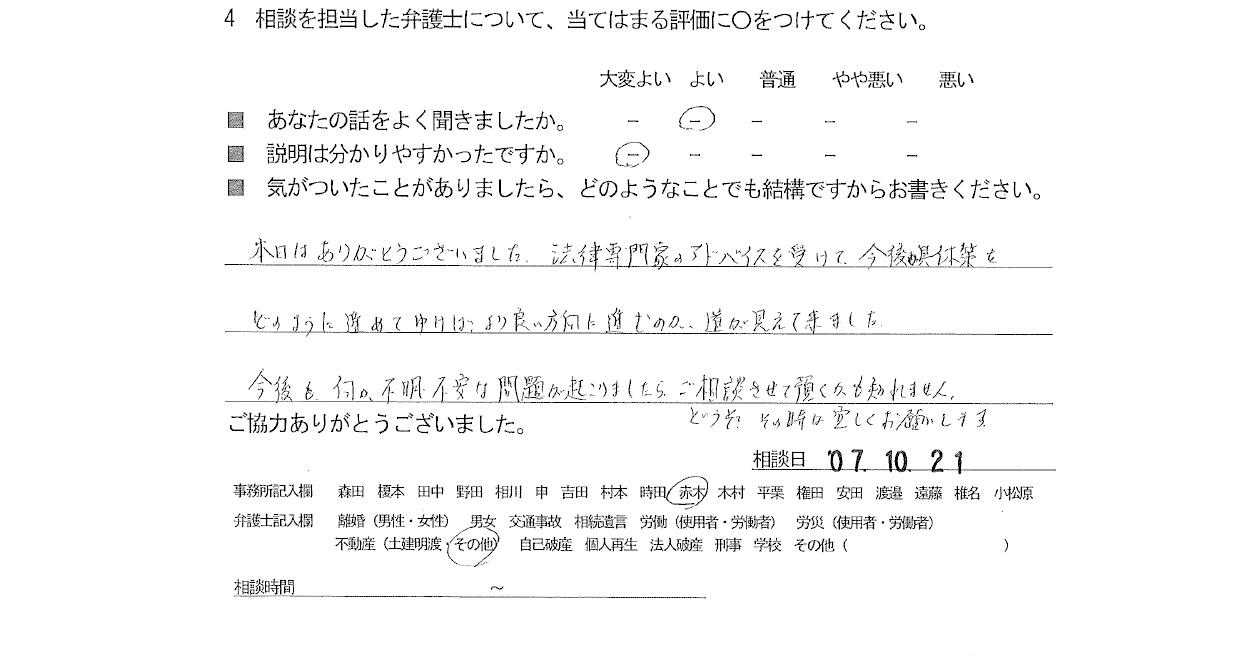 4 相談を担当した弁護士について、当てはまる評価に〇をつけてください。
大変よい よい 普通 やや悪い 悪い
■ あなたの話をよく聞きましたか。 － － － － －
■ 説明は分かりやすかったですか。 － － － － －
■ 気がついたことがありましたら、どのようなことでも結構ですからお書きください。
本日はありがとうございました。法律専門家のアドバイスを受けて、今後の具体策を
どのように進めてゆけば、より良い方向に進むのか、道が見えて来ました。
今後も、何か、不明・不安な問題が起こりましたら、ご相談させて頂くかも知れません。
どうぞ、その時は宜しくお願いします。
ご協力ありがとうございました。
相談日 '07. 10. 21
事務所記入欄 森田 榎本 田中 野田 相川 申 吉田 村本 時田 赤木 木村 平栗 権田 安田 渡邉 遠藤 椎名 小松原
弁護士記入欄 離婚（男性・女性） 男女 交通事故 相続遺言 労働（使用者・労働者） 労災（使用者・労働者）
不動産（土建明渡・その他） 自己破産 個人再生 法人破産 刑事 学校 その他（ ）
相談時間 ～